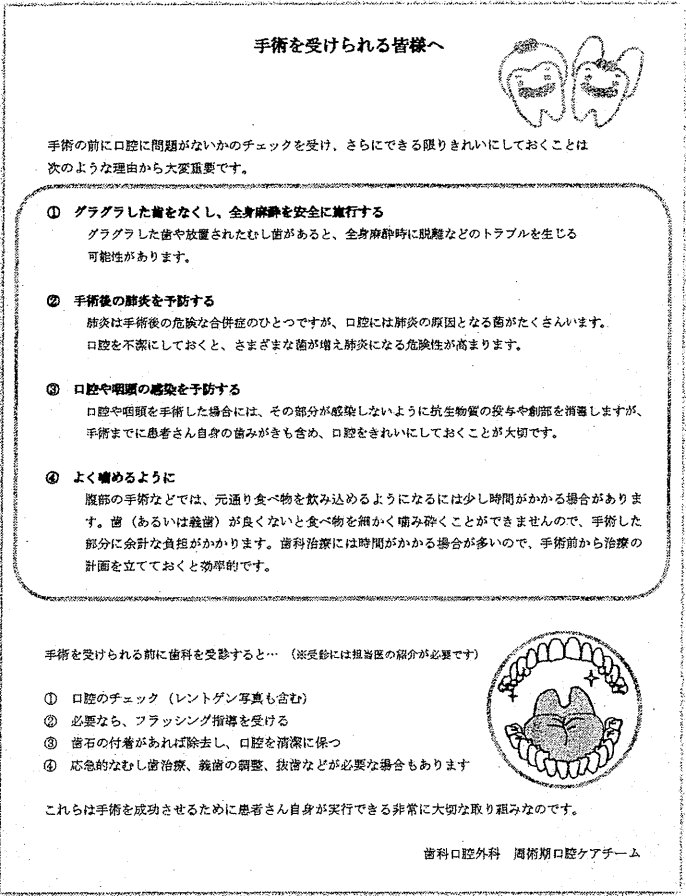 手術を受けられる皆様へ
手術の前に口腔に問題がないかのチェックを受け、さらにできる限りきれいにしておくことは
次のような理由から大変重要です。
① グラグラした歯をなくし、全身麻酔を安全に施行する
グラグラした歯や放置されたむし歯があると、全身麻酔時に脱離などのトラブルを生じる
可能性があります。
② 手術後の肺炎を予防する
肺炎は手術後の危険な合併症のひとつですが、口腔には肺炎の原因となる菌がたくさんいます。
口腔を不潔にしておくと、さまざまな菌が増え肺炎になる危険性が高まります。
③ 口腔や咽頭の感染を予防する
口腔や咽頭を手術した場合には、その部分が感染しないように抗生物質の投与や創部を消毒しますが、
手術までに患者さん自身の歯みがきも含め、口腔をきれいにしておくことが大切です。
④ よく噛めるように
腹部の手術などでは、元通り食べ物を飲み込めるようになるには少し時間がかかる場合がありま
す。歯（あるいは義歯）が良くないと食べ物を細かく噛み砕くことができませんので、手術した
部分に余計な負担がかかります。歯科治療には時間がかかる場合が多いので、手術前から治療の
計画を立てておくと効率的です。
手術を受けられる前に歯科を受診すると…（※受診には担当医の紹介が必要です）
① 口腔のチェック（レントゲン写真も含む）
② 必要なら、ブラッシング指導を受ける
③ 歯石の付着があれば除去し、口腔を清潔に保つ
④ 応急的なむし歯治療、義歯の調整、抜歯などが必要な場合もあります
これらは手術を成功させるために患者さん自身が実行できる非常に大切な取り組みなのです。
歯科口腔外科 周術期口腔ケアチーム